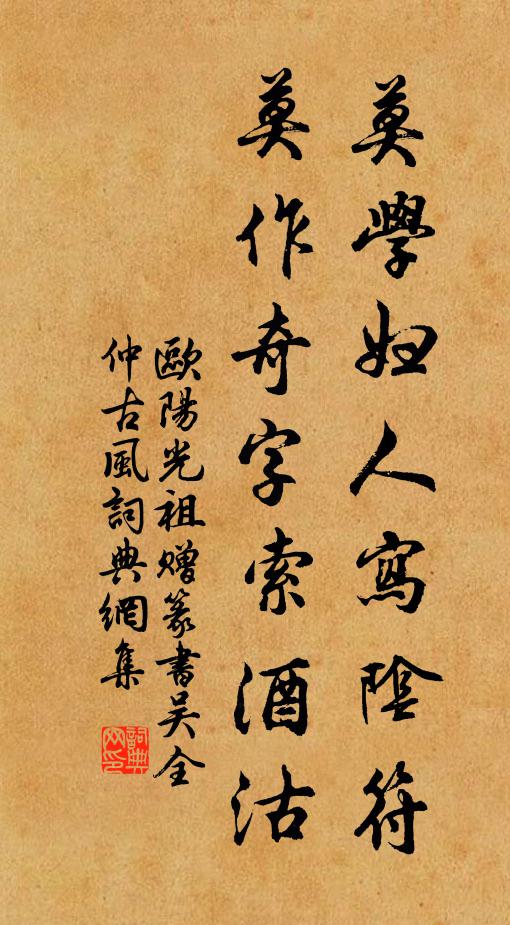 莫學妇人寫陰符
莫作奇字索酒沽
歐陽光祖贈篆書吴全
仲古風詞典網集
詞典
网印